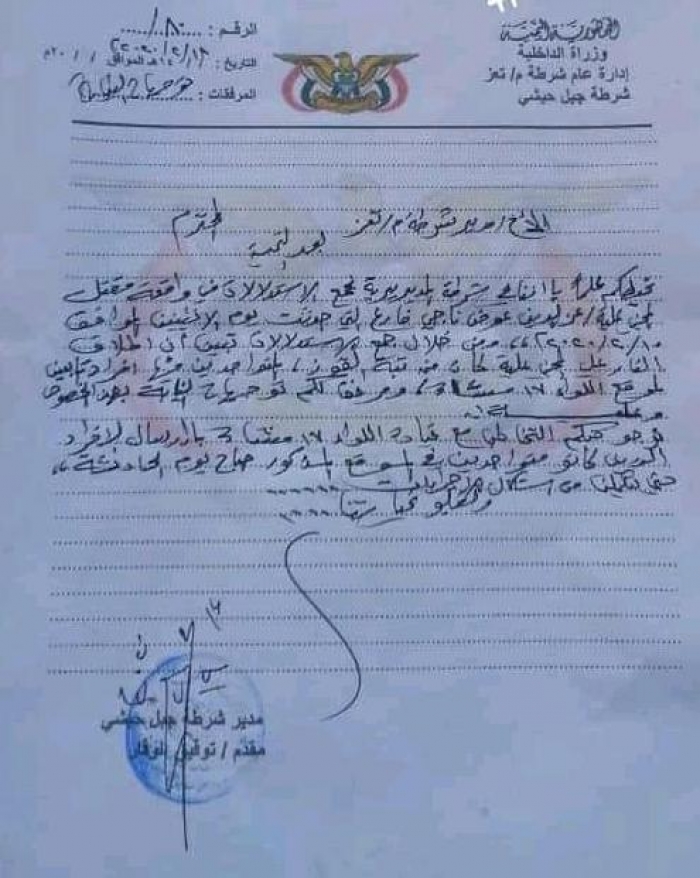 الجمهورية اليمنية
وزراة الداخلية
إدارة عام شرطة م/ تعز
شرطة جبل حبشي
الرقم : ٨٠/
التاريخ : / / ١٤هـ الموافق ٢٠٢٠/٢/١٨ / / ٢٠م
المرفقات :
الأخ/ مدير شرطة م/ تعز المحترم
بعد التحية
نحيطكم علماً بأننا في شرطة المديرية بجمع الاستدلالات في واقعة مقتل
المجني عليه/ عوض ناجي التي حدثت يوم الاثنين الموافق
٢٠٢٠/٢/١٠ ومن خلال جمع الاستدلالات تبين أن اطلاق
النار على المجني عليه كان من تبة المتواجدين فيها افراد تابعين
لموقع اللواء ١٧ مشاه، ومرفق لكم توجيهات النيابة بهذا الخصوص
وعليه
نرجو منكم التخاطب مع قيادة اللواء ١٧ مشاه بارسال الافراد
الذين كانو متواجدين في الموقع المذكور صباح يوم الحادثة
حتى نتمكن من استكمال الاجراءات
وتقبلو تحياتنا
مدير شرطة جبل حبشي
مقدم / توفيق الوقار